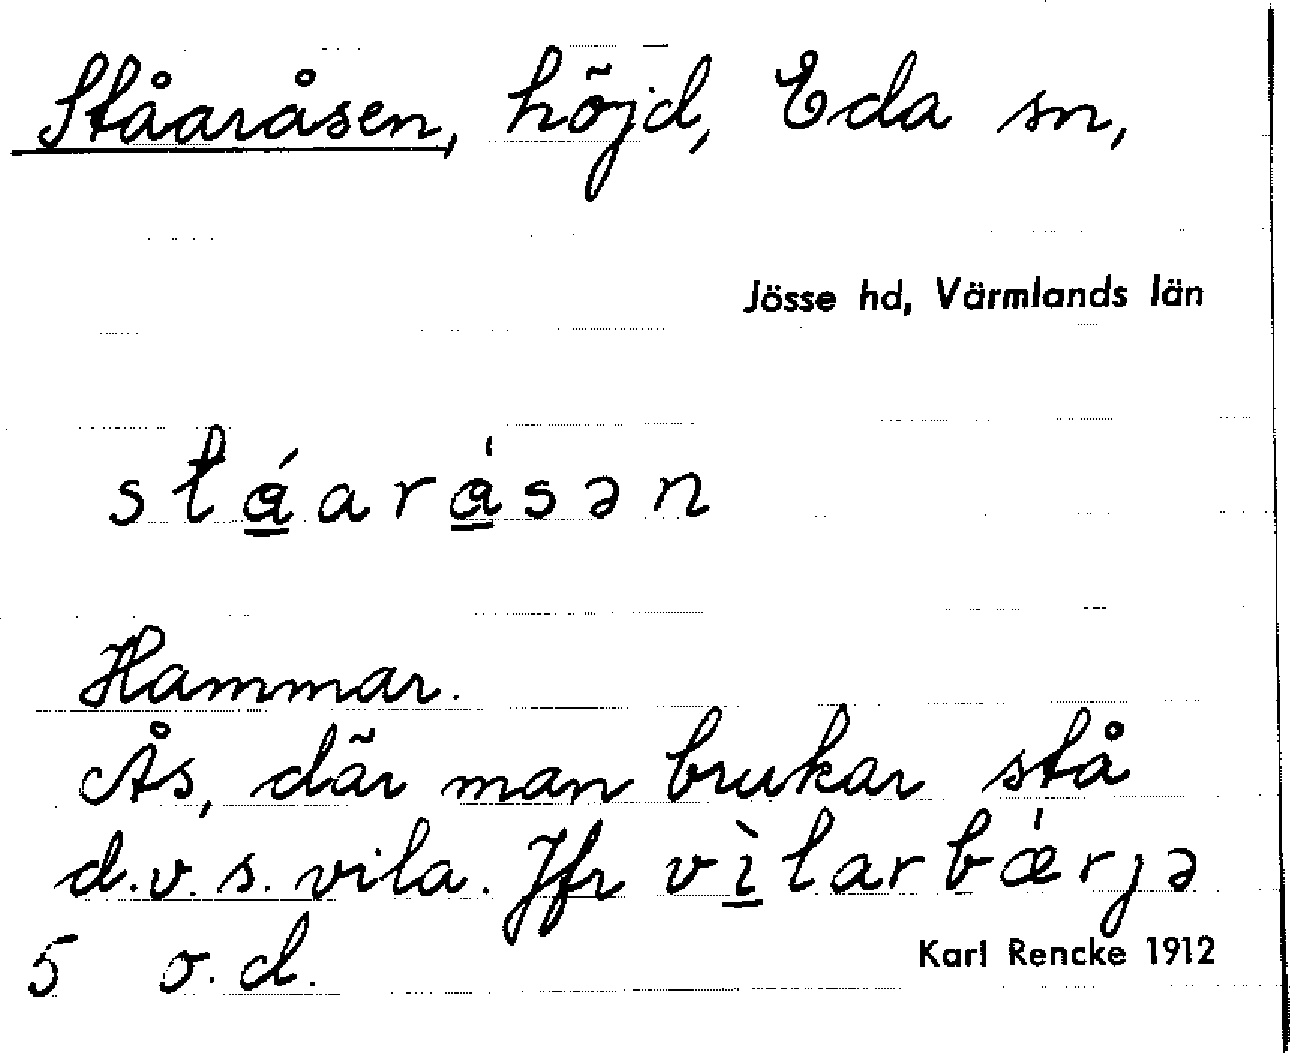 Ståaråsen, höjd, Eda sn,
Jösse hd, Värmlands län
stáaråsən
Hammar.
Ås, där man brukar stå
d.v.s. vila. Jfr vìlarbǽrjə
5 o.d.
Karl Rencke 1912